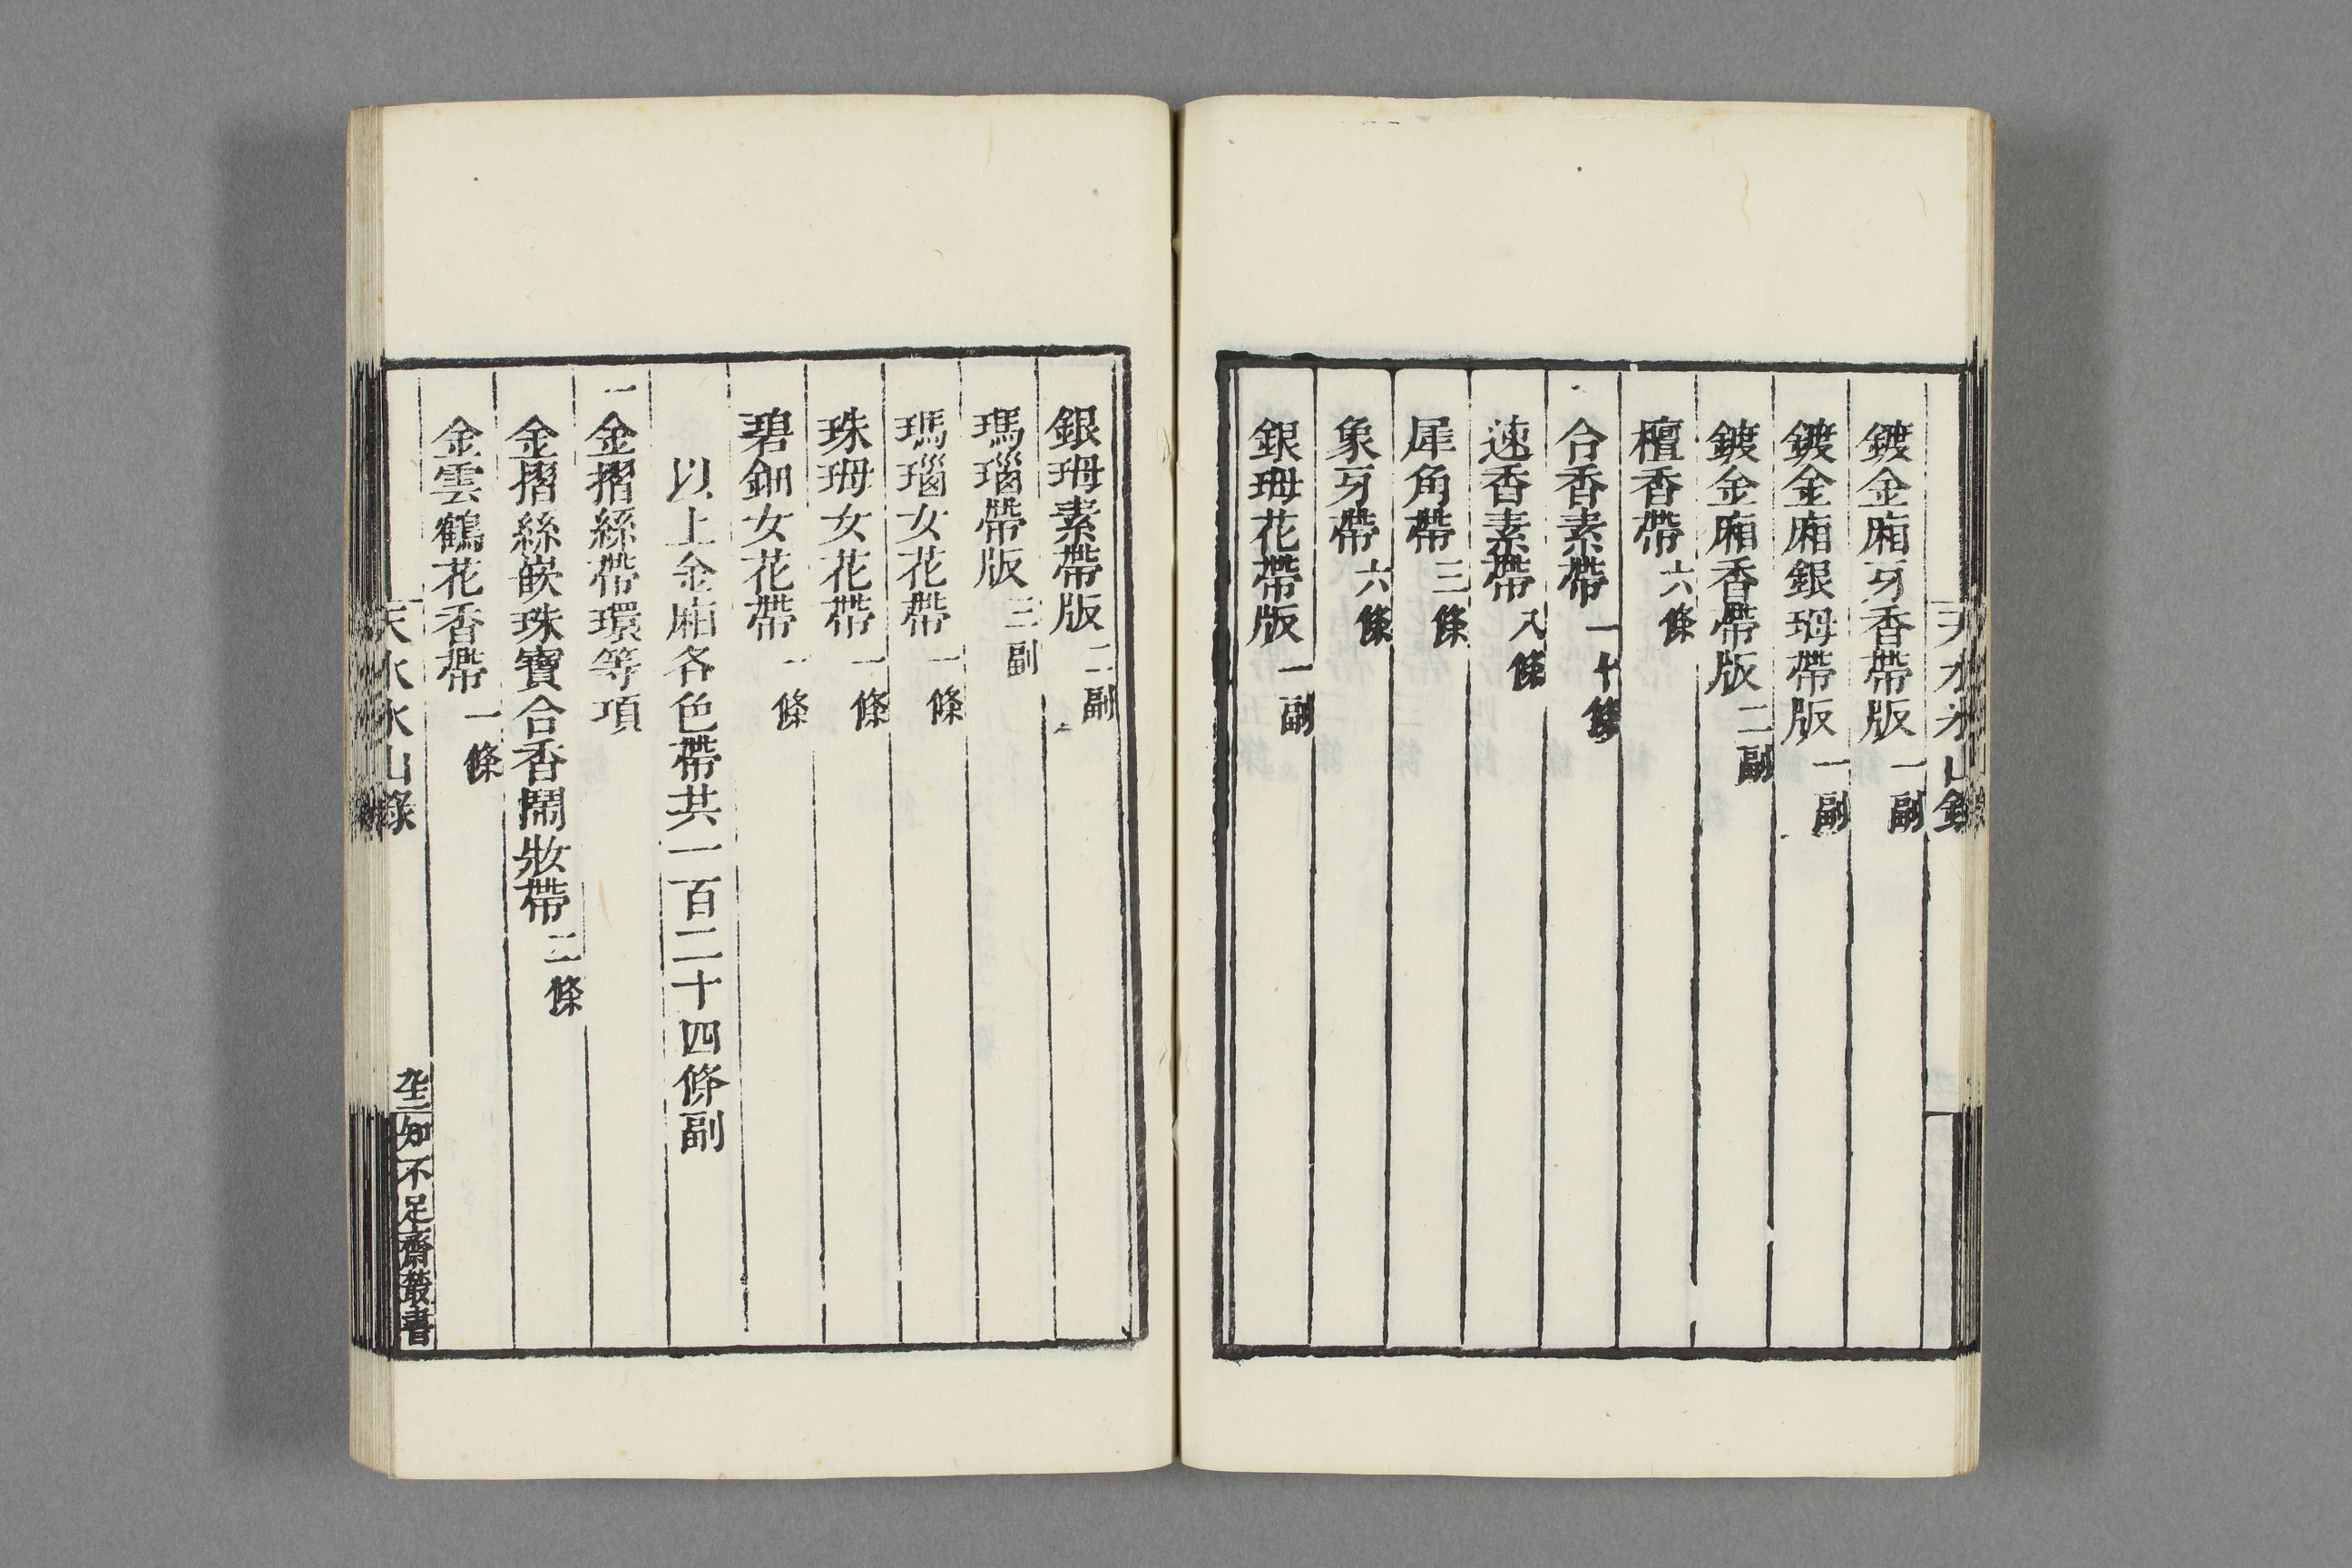 天水冰山錄
鍍金廂牙香帶版一副
鍍金廂銀珻帶版一副
鍍金廂香帶版二副
檀香帶六條
合香素帶一十條
速香素帶八條
犀角帶三條
象牙帶六條
銀珻花帶版一副
銀珻素帶版二副
瑪瑙帶版三副
瑪瑙女花帶一條
珠珻女花帶一條
碧鈿女花帶一條
以上金廂各色帶共一百二十四條副
一金摺絲帶環等項
金摺絲嵌珠寶合香鬧妝帶二條
金雲鶴花香帶一條
天水冰山錄
知不足齋叢書